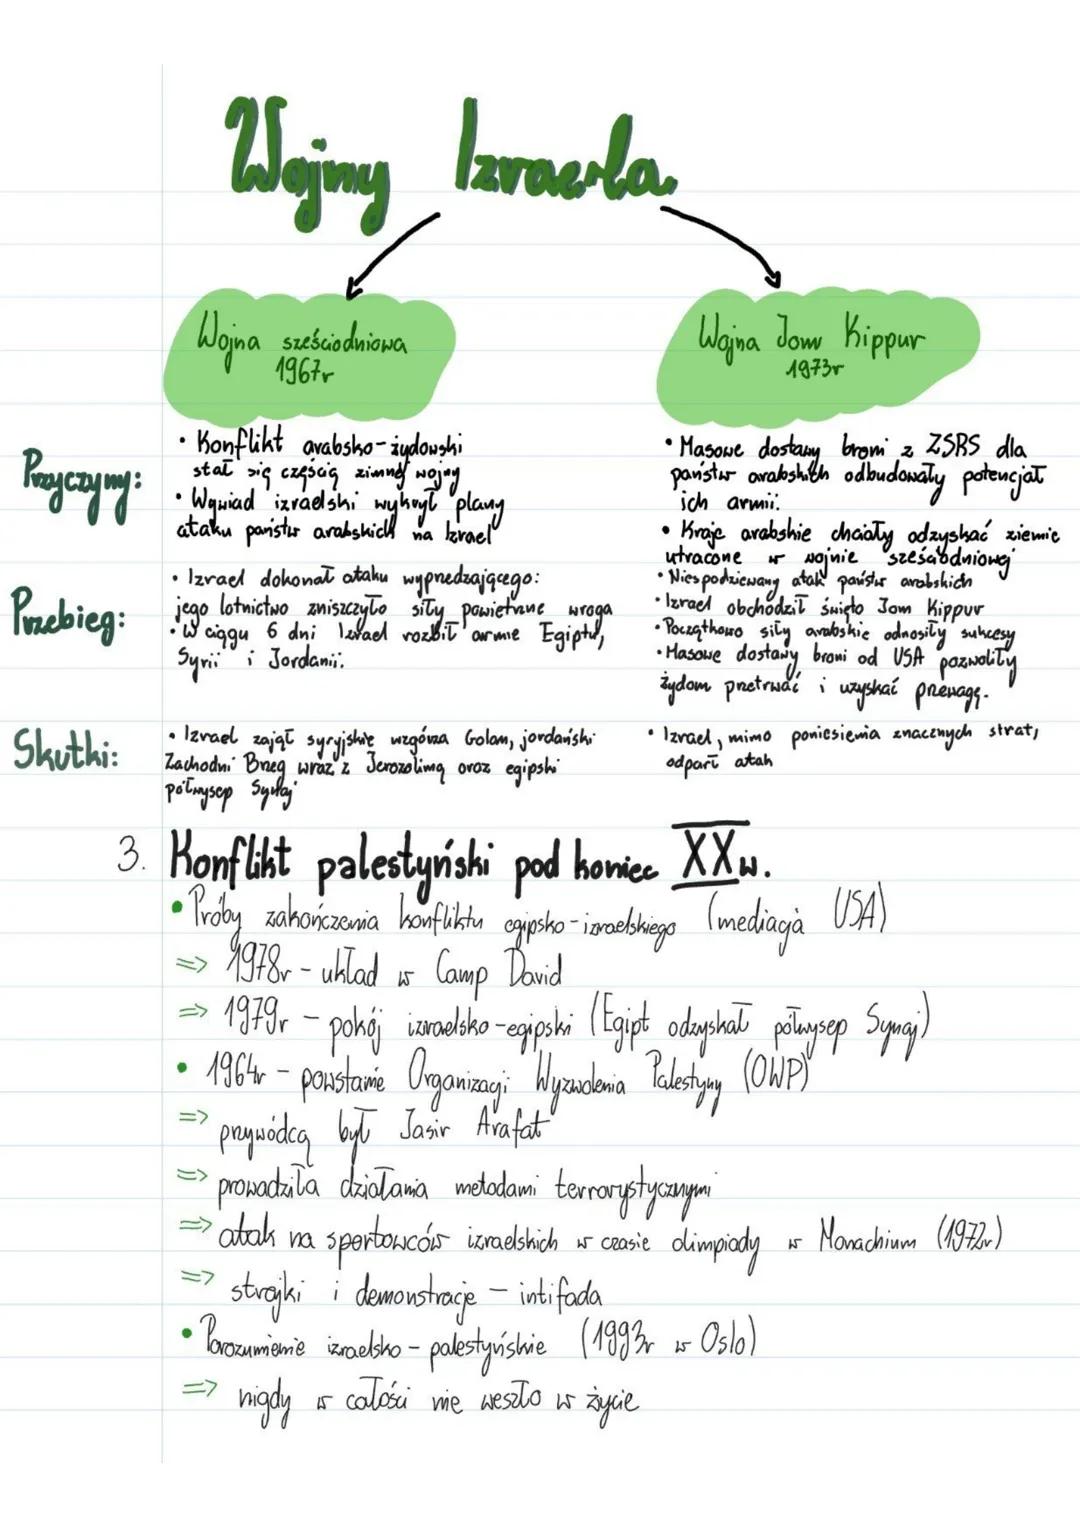 Wojny Izraela
Wojna sześciodniowa
1967r
Wojna Jom Kippur
1973r
Przyczyny:
• Konflikt arabsko-żydowski
stał się częścią zimnej wojny
• Wywiad izraelski wykrył plany
ataku państw arabskich na Izrael
• Masowe dostawy broni z ZSRS dla
państw arabskich odbudowały potencjał
ich armii.
• Kraje arabskie chciały odzyskać ziemie
utracone w wojnie sześciodniowej
Przebieg:
• Izrael dokonał ataku wyprzedzającego:
jego lotnictwo zniszczyło siły powietrzne wroga
• W ciągu 6 dni Izrael rozbił armie Egiptu,
Syrii i Jordanii.
• Niespodziewany atak państw arabskich
• Izrael obchodził święto Jom Kippur
• Początkowo siły arabskie odnosiły sukcesy
• Masowe dostawy broni od USA pozwoliły
żydom przetrwać i uzyskać przewagę.
Skutki:
• Izrael zajął syryjskie wzgórza Golan, jordański
Zachodni Brzeg wraz z Jerozolimą oraz egipski
półwysep Synaj
• Izrael, mimo poniesienia znacznych strat,
odparł atak
3. Konflikt palestyński pod koniec XXw.
• Próby zakończenia konfliktu egipsko-izraelskiego (mediacja USA)
=> 1978r - układ w Camp David
=> 1979r - pokój izraelsko-egipski (Egipt odzyskał półwysep Synaj)
• 1964r - powstanie Organizacji Wyzwolenia Palestyny (OWP)
=> przywódcą był Jasir Arafat
=> prowadziła działania metodami terrorystycznymi
=> atak na sportowców izraelskich w czasie olimpiady w Monachium (1972r)
=> strajki i demonstracje - intifada
• Porozumienie izraelsko-palestyńskie (1993r w Oslo)
=> nigdy w całości nie weszło w życie